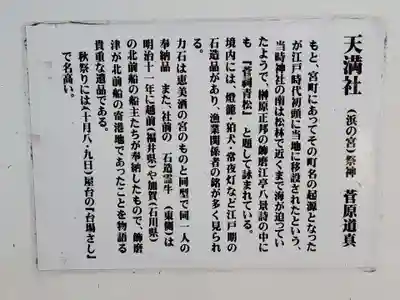 天満社 (浜の宮) 祭神 菅原道真
もと、宮町にあってその町名の起源となった
が江戸時代初頭に当地に移設されたという、
当時神社の南は松林で近くまで海が迫ってい
たようで、榊原正邦の飾磨江亭八景詩の中に
も『菅祠青松』と題して詠まれている。
境内には、燈籠・狛犬・常夜灯など江戸期の
石造品があり、漁業関係者の銘が多く見られ
る。
力石は恵美酒の宮のものと同型で同一人の
奉納品 また、社前の 石造霊牛(東側)は
明治十一年に越前(福井県)や加賀(石川県)
の北前船の船主たちが奉納したもので、飾磨
津が北前船の寄港地であったことを物語る
貴重な遺品である。
秋祭りには(十月八・九日)屋台の『台場さし』
で名高い。